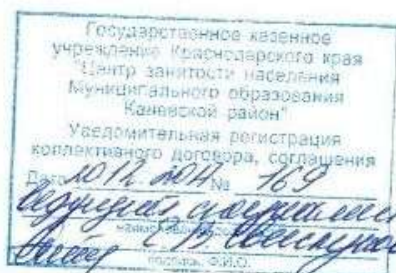 Государственное казенное
учреждение Краснодарского края
"Центр занятости населения
Муниципального образования
Каневской район"
Уведомительная регистрация
коллективного договора, соглашения
Дата 20.12.2017 № 169
ведущий
подпись, Ф.И.О.